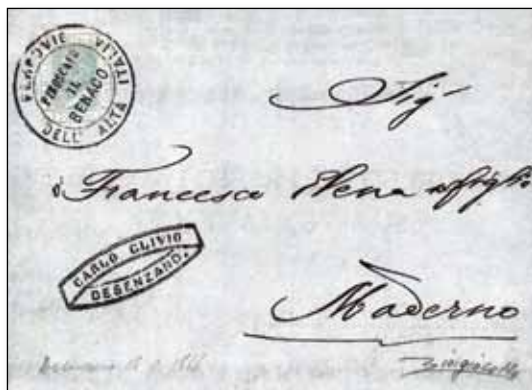 FERROVIE
DELL' ALTA
ITALIA
PIROSCAFO
IL
BENACO
Sig
Francesco
CARLO CLIVIO
DESENZANO.
Maderno